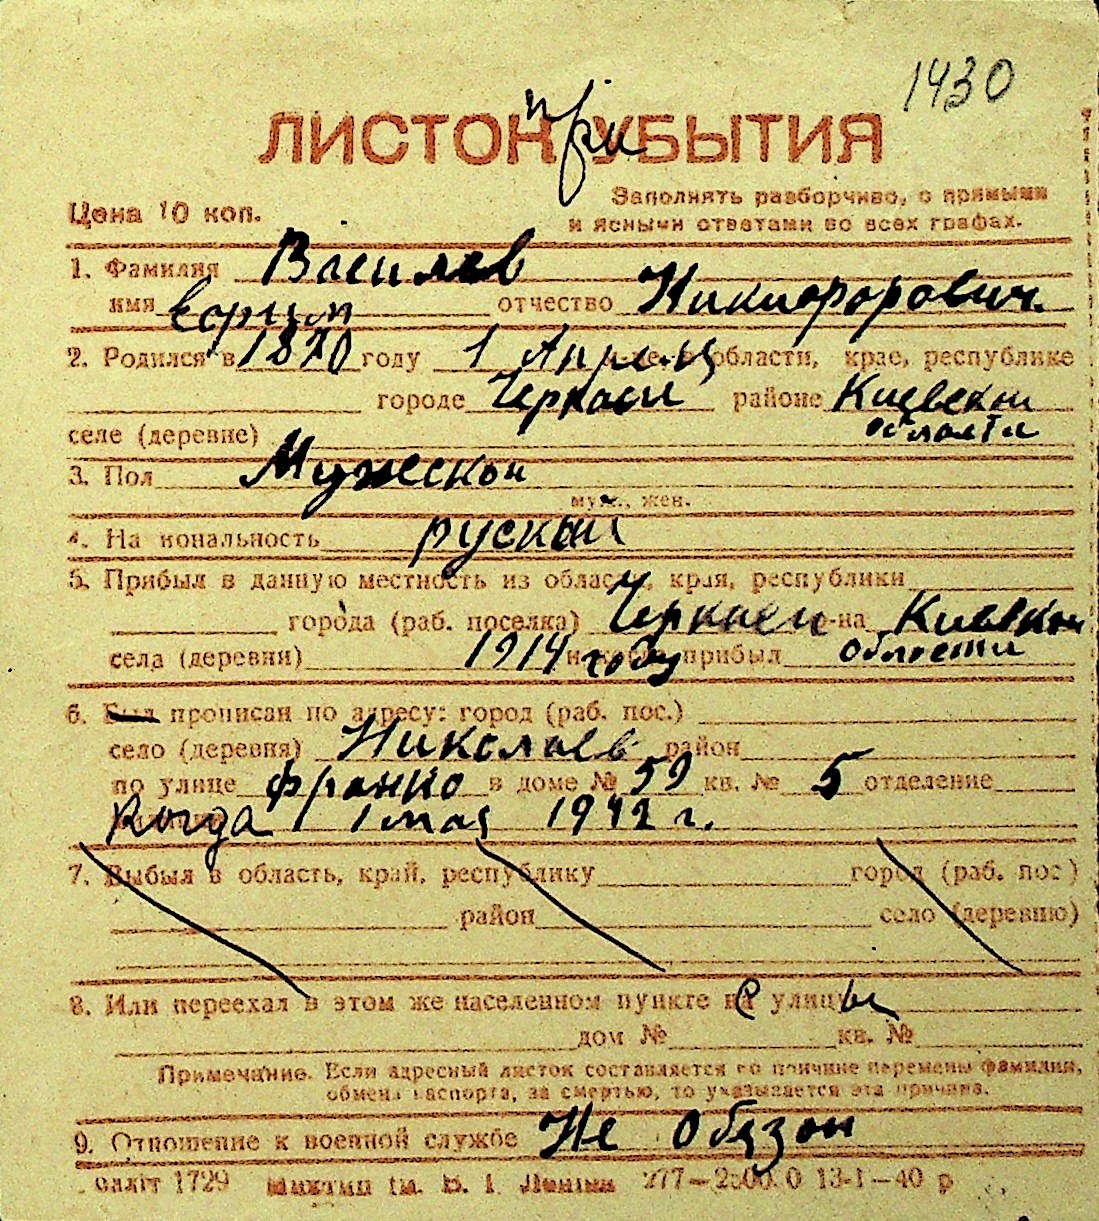 1430
ЛИСТОК при УБЫТИЯ
Цена 10 коп.
Заполнять разборчиво, с прямыми
и ясными ответами во всех графах.
1. Фамилия Василев
имя отчество Никифорович.
2. Родился в 1870 году 1 Апрель области, крае, республике
городе Черкасы районе Киевской
области
селе (деревне)
3. Пол Мужеской
муж., жен.
4. Национальность руский
5. Прибыл в данную местность из области, края, республики
города (раб. поселка) Черкасы р-на Киевкой
села (деревни) 1914 году прибыл области
6. Был прописан по адресу: город (раб. пос.)
село (деревня) Николаев район
по улице Франко в доме № 59 кв. № 5 отделение
Когда 1 мая 1942 г.
7. Выбыл в область, край, республику город (раб. пос)
район село (деревню)
8. Или переехал в этом же населенном пункте с улицы
дом № кв. №
Примечание. Если адресный листок составляется по причине перемены фамилии,
обмена паспорта, за смертью, то указывается эта причина.
9. Отношение к военной службе Не обязон
1729 277—2500.0 13-I—40 р